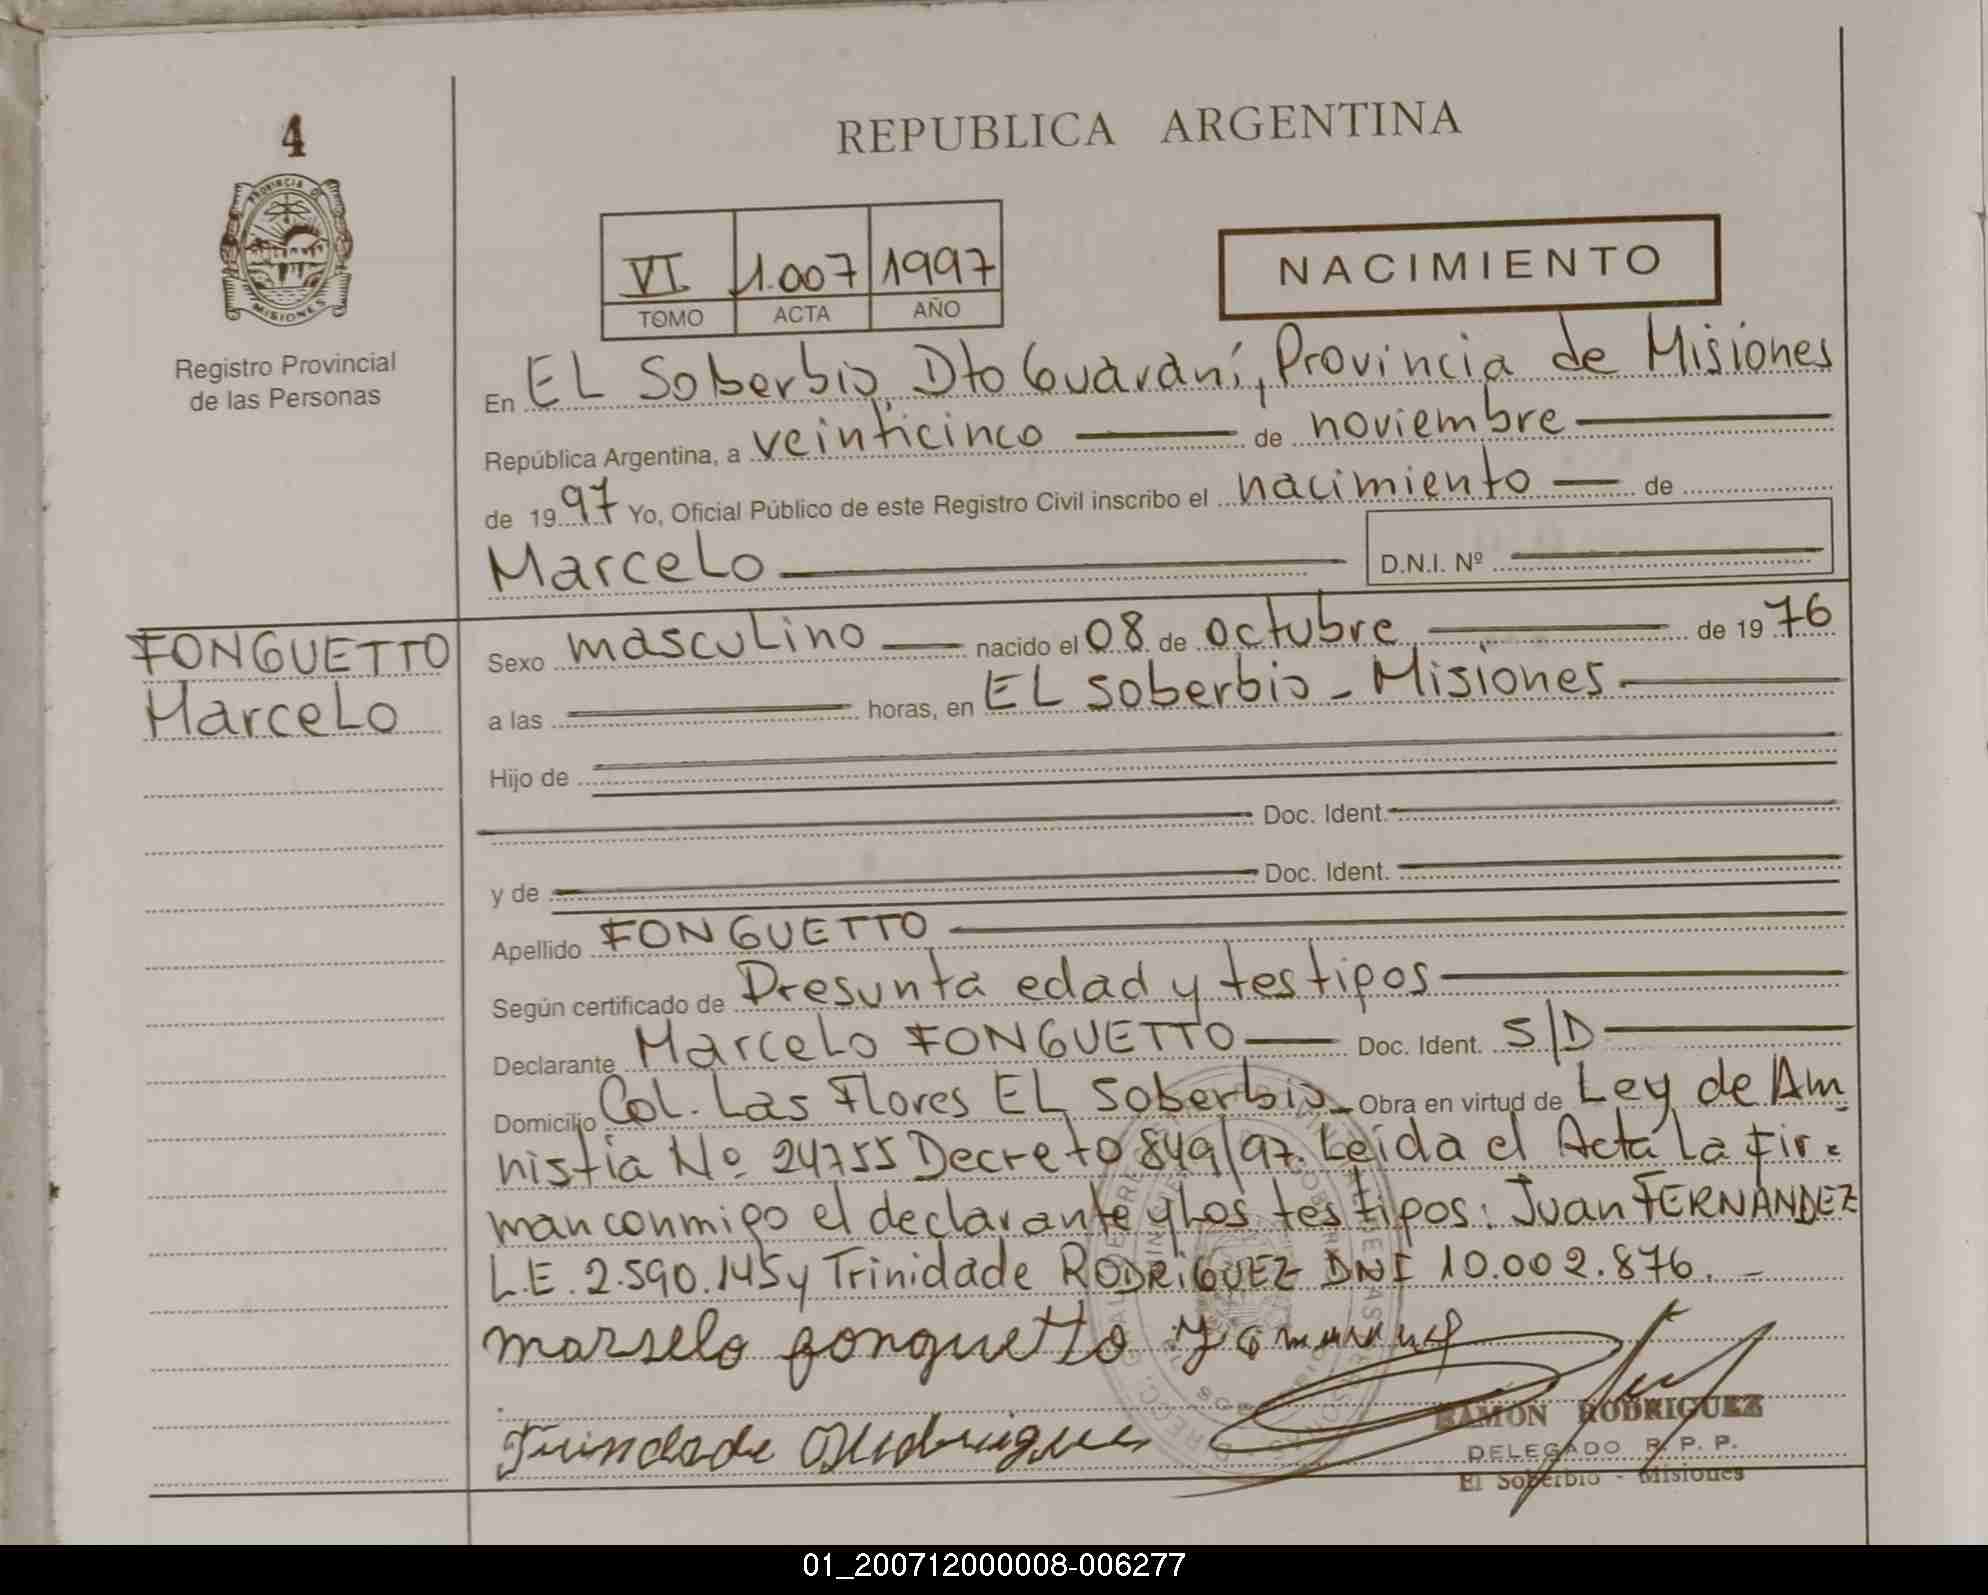 4
REPUBLICA ARGENTINA
PROVINCIA D
MISIONES
Registro Provincial
de las Personas
VI 1.007 1997
TOMO ACTA AÑO
NACIMIENTO
En EL Soberbio, Dto Guaraní, Provincia de Misiones
República Argentina, a veinticinco de noviembre
de 1997 Yo, Oficial Público de este Registro Civil inscribo el nacimiento de
Marcelo
D.N.I. Nº
FONGUETTO
Marcelo
Sexo masculino nacido el 08 de octubre de 1976
a las horas, en EL Soberbio - Misiones
Hijo de
Doc. Ident.
y de Doc. Ident.
Apellido FONGUETTO
Según certificado de Presunta edad y testigos
Declarante Marcelo FONGUETTO Doc. Ident. S/D
Domicilio Col. Las Flores EL Soberbio - Obra en virtud de Ley de Am
nistia Nº 24755 Decreto 849/97. Leida el Acta La fir=
man conmigo el declarante y Los testigos: Juan FERNANDEZ
L.E. 2.590.145 y Trinidade RODRIGUEZ DNI 10.002.876. -
marselo fonguetto
Trindade Rodrigues
RAMON RODRIGUEZ
DELEGADO R. P. P.
El Soberbio - Misiones
01_200712000008-006277